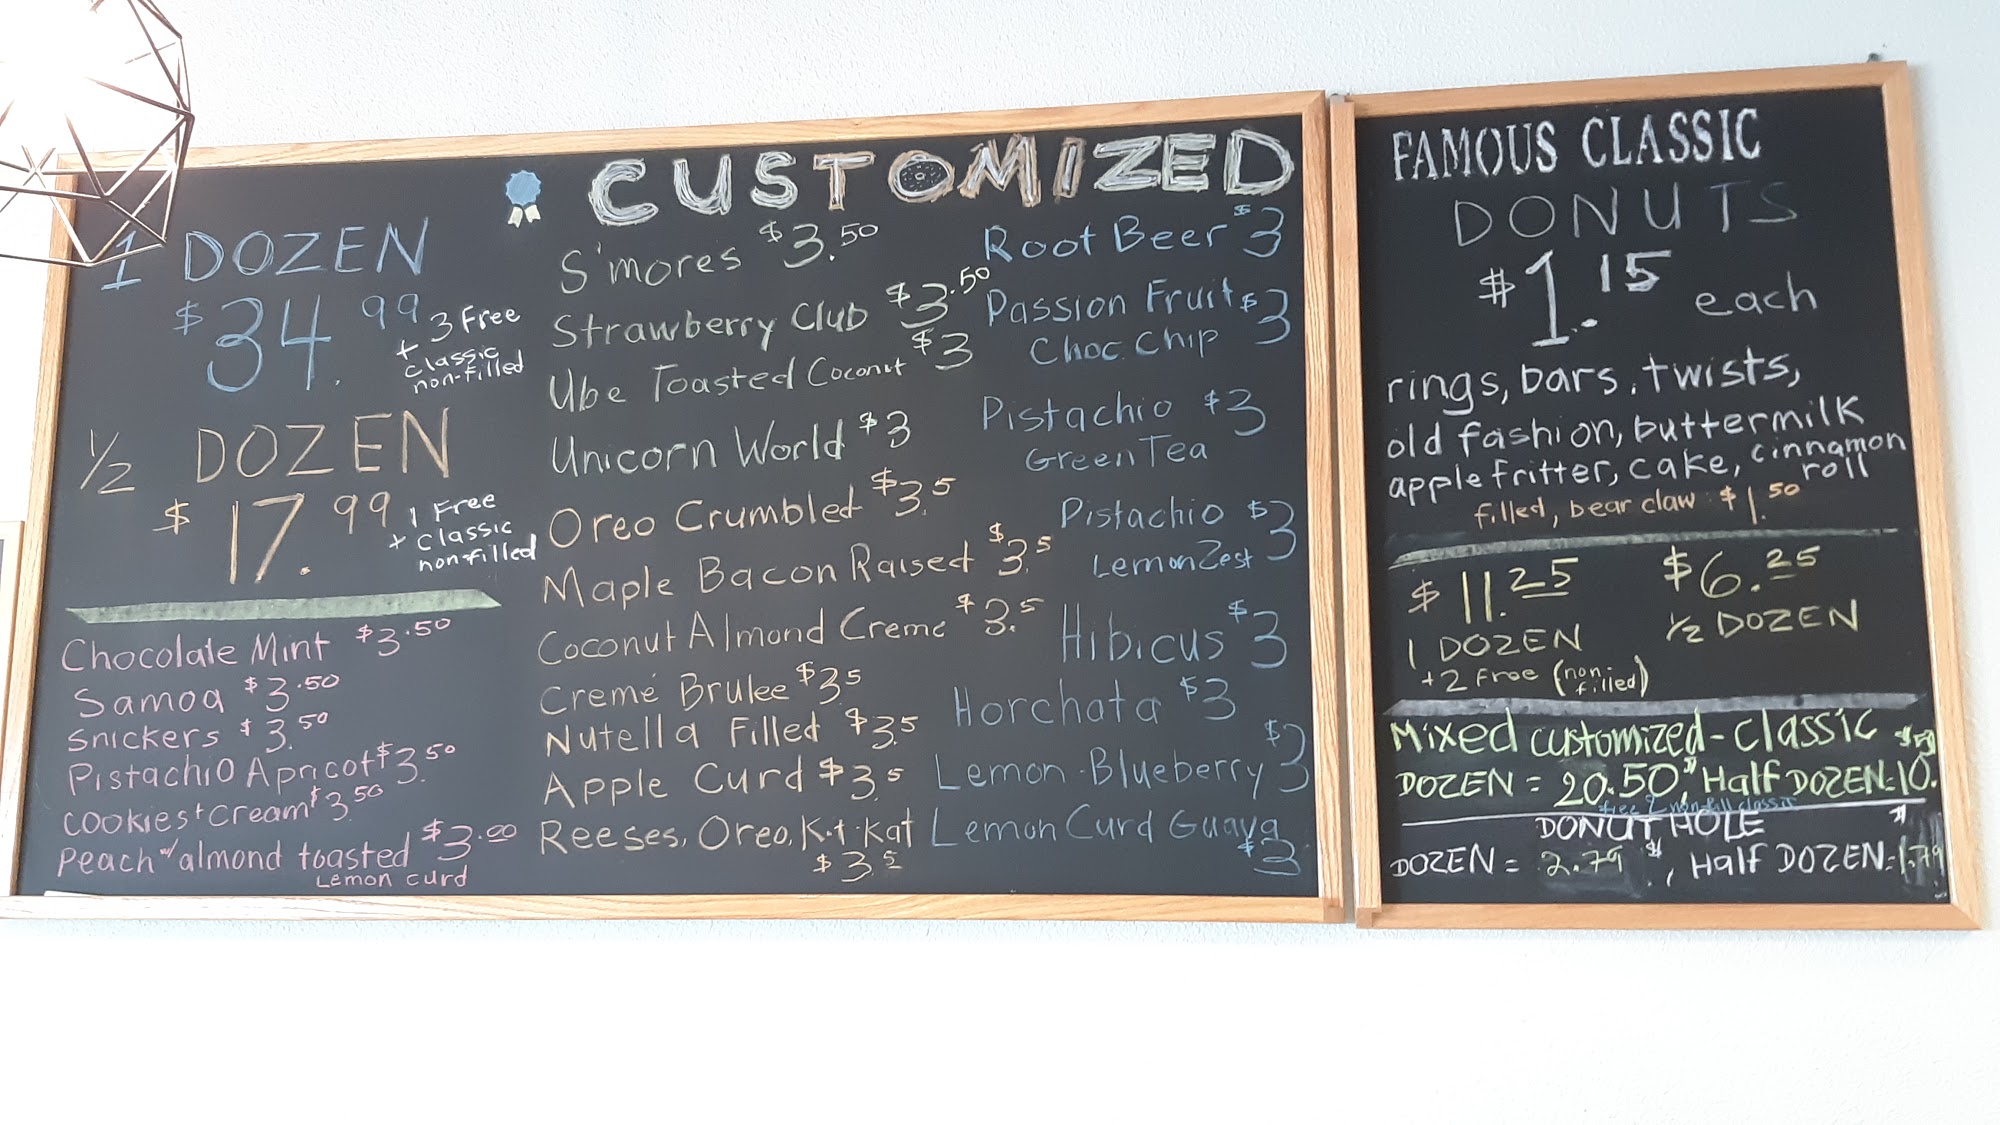 CUSTOMIZED
1 DOZEN
$34.99
+ 3 Free
classic
non-filled
1/2 DOZEN
$17.99
1 Free
+ classic
non-filled
Chocolate Mint $3.50
Samoa $3.50
Snickers $3.50
Pistachio Apricot $3.50
Cookies + Cream $3.50
Peach w/ almond toasted $3.00
Lemon curd
S'mores $3.50
Strawberry Club $3.50
Ube Toasted Coconut $3
Unicorn World $3
Oreo Crumbled $3.5
Maple Bacon Raised $3.5
Coconut Almond Creme $3.5
Cremé Brulee $3.5
Nutella Filled $3.5
Apple Curd $3.5
Reeses, Oreo, Kit-Kat
$3.5
Root Beer $3
Passion Fruit $3
Choc. Chip
Pistachio $3
Green Tea
Pistachio $3
Lemon Zest
Hibicus $3
Horchata $3
Lemon-Blueberry $3
Lemon Curd Guava
$3
FAMOUS CLASSIC
DONUTS
$1.15 each
rings, bars, twists,
old fashion, buttermilk
apple fritter, cake, cinnamon
roll
filled, bear claw $1.50
$11.25
1 DOZEN
+2 Free (non
filled)
$6.25
1/2 DOZEN
Mixed customized-classic
DOZEN = 20.50, Half DOZEN=10.50
free 2 non-fill classic
DONUT HOLE
DOZEN = 2.79, Half DOZEN=1.79